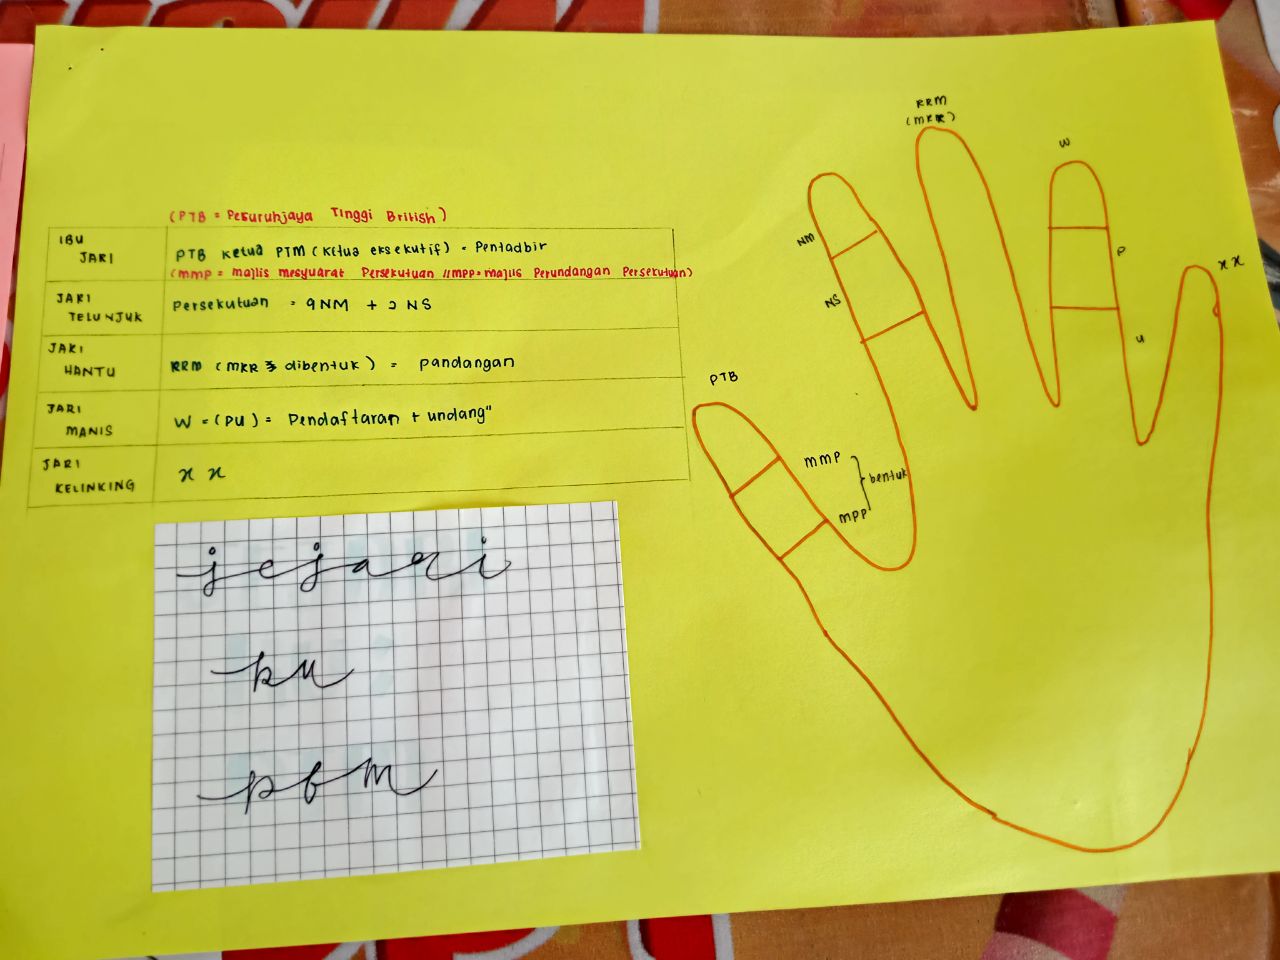 (PTB = Pesuruhjaya Tinggi British)
IBU JARI
PTB Ketua PTM (Ketua eksekutif) = Pentadbir
(MMP = majlis mesyuarat Persekutuan // MPP = majlis Perundangan Persekutuan)
JARI TELUNJUK
Persekutuan = 9NM + 2 NS
JARI HANTU
RRM (MKR dibentuk) = pandangan
JARI MANIS
W = (PU) = Pendaftaran + undang"
JARI KELINKING
x x
jejari
ku
pbm
RRM
(MKR)
W
NM
P
x x
NS
U
PTB
MMP
bentuk
MPP